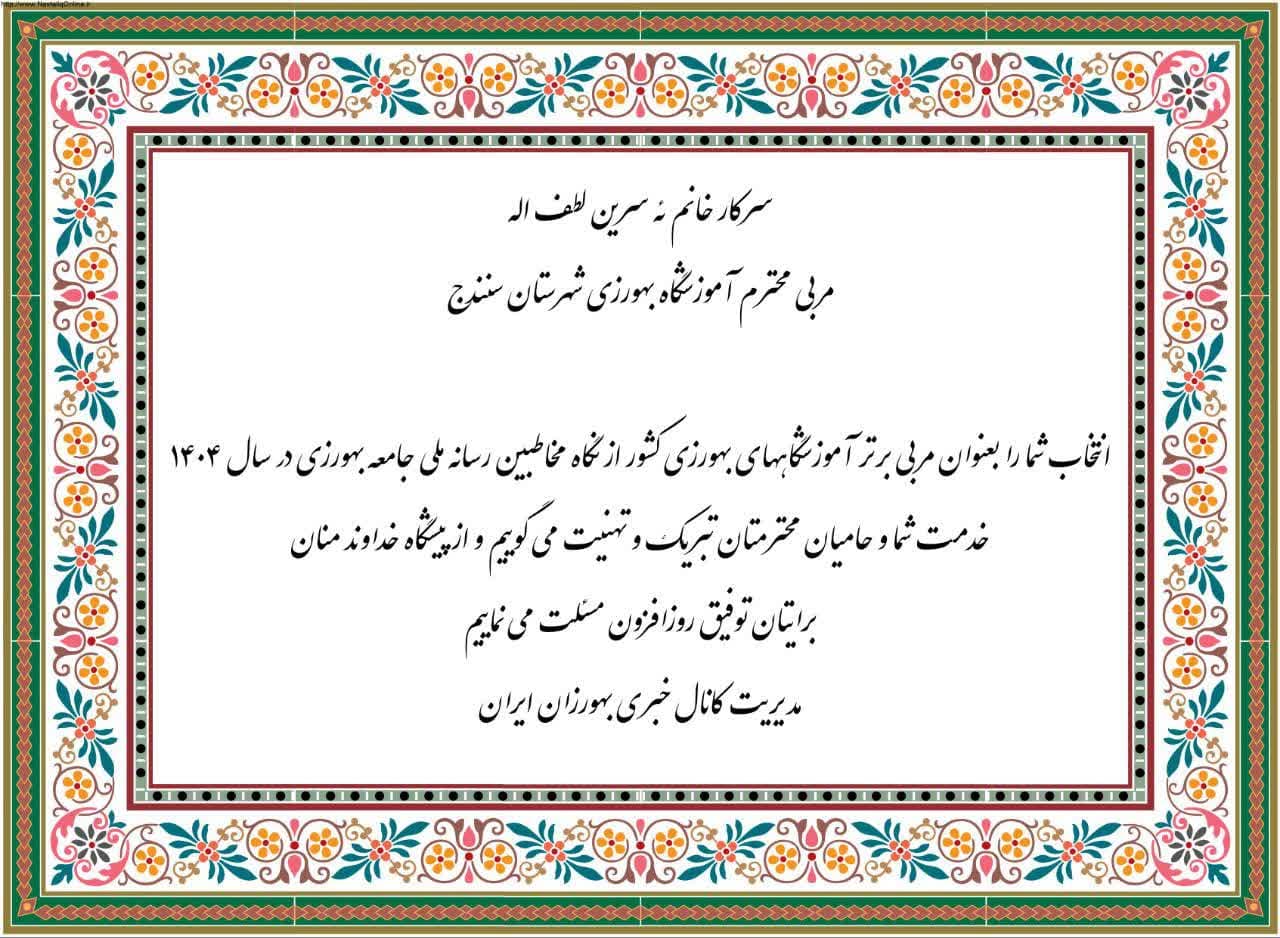 http://www.NastaliqOnline.ir
سرکار خانم ئه سرین لطف اله
مربی محترم آموزشگاه بهورزی شهرستان سنندج
انتخاب شما را بعنوان مربی برتر آموزشگاههای بهورزی کشور از نگاه مخاطبین رسانه ملی جامعه بهورزی در سال ۱۴۰۴
خدمت شما و حامیان محترمتان تبریک و تهنیت می گوییم و از پیشگاه خداوند منان
برایتان توفیق روزافزون مسئلت می نماییم
مدیریت کانال خبری بهورزان ایران